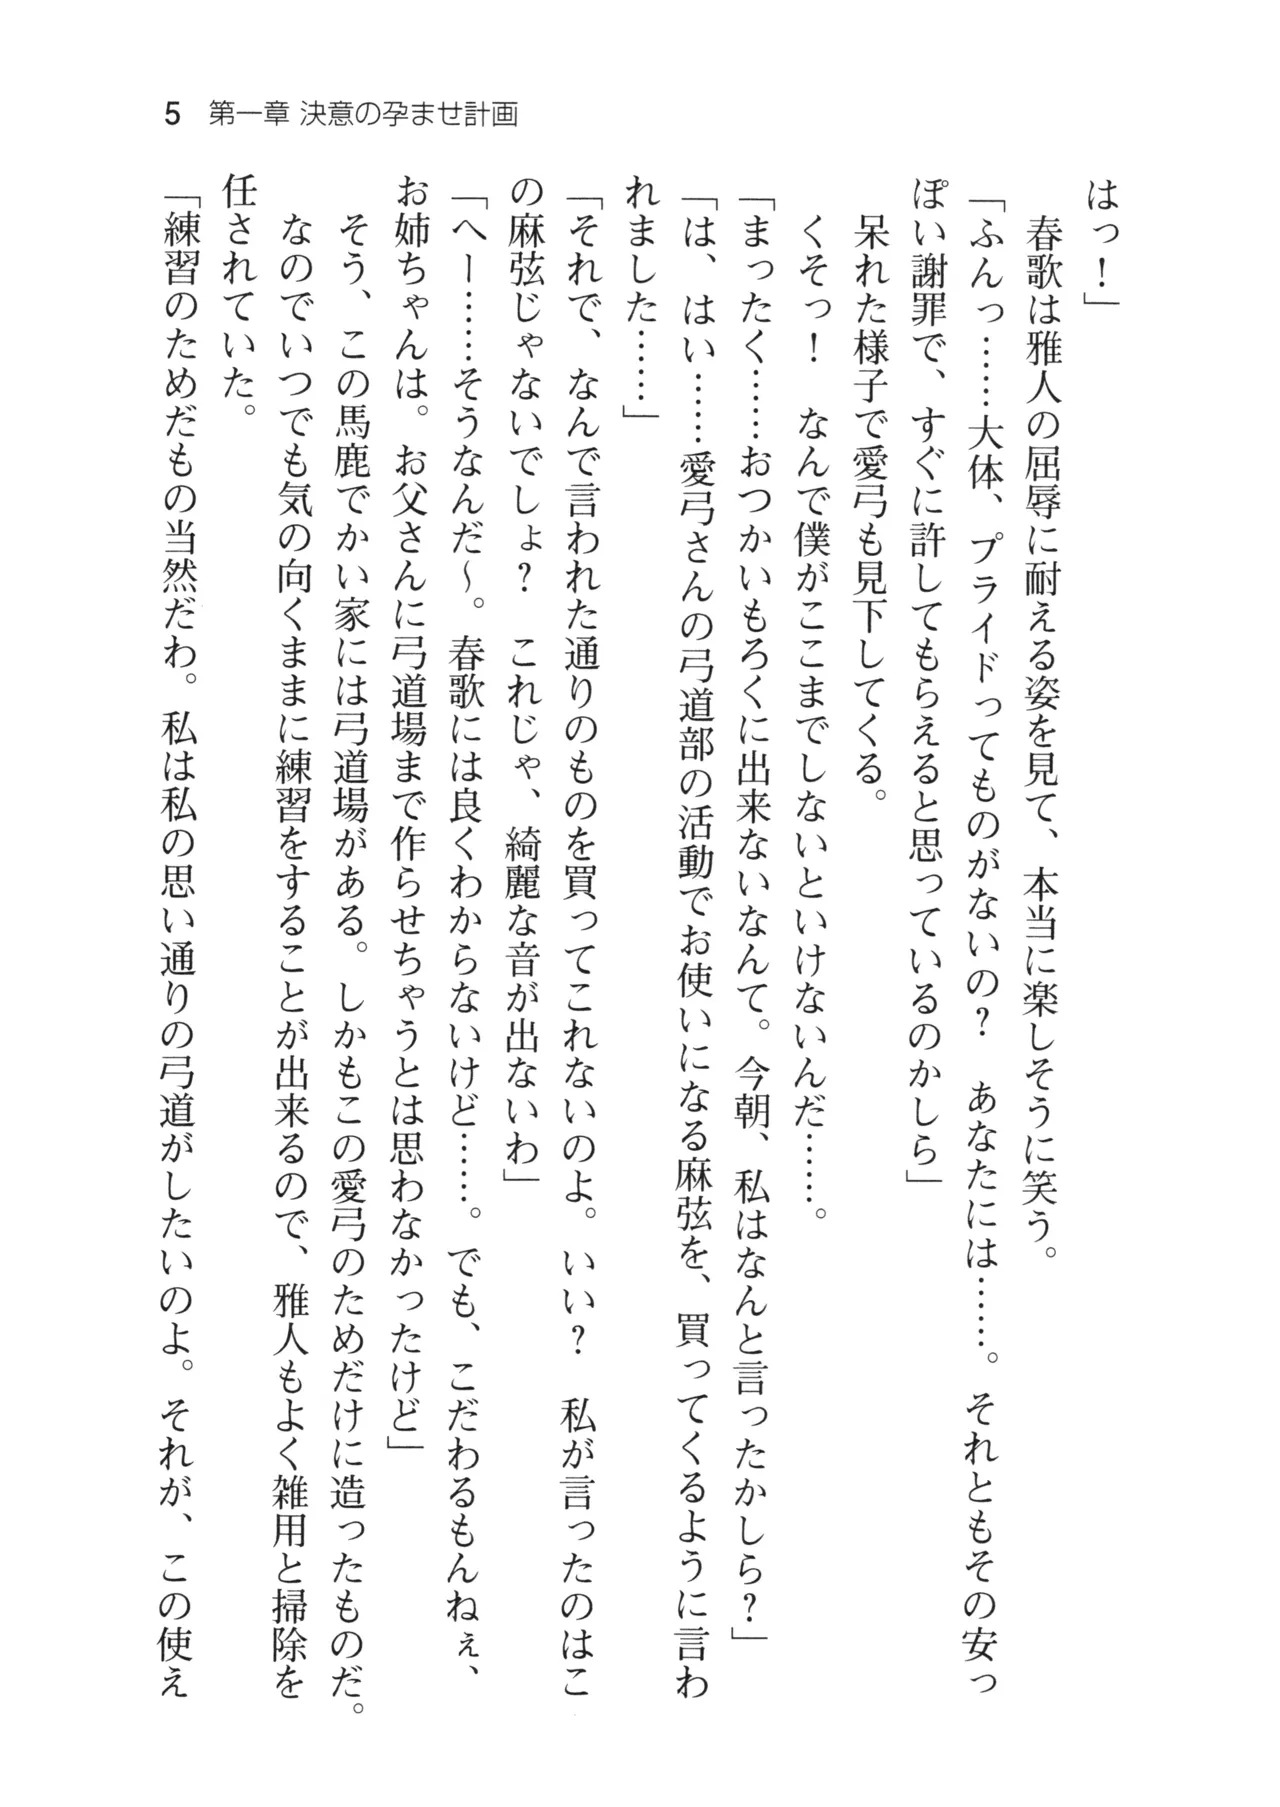 5 第一章 決意の孕ませ計画
はっ！」
　春歌は雅人の屈辱に耐える姿を見て、本当に楽しそうに笑う。
「ふんっ……大体、プライドってものがないの？　あなたには……。それともその安っ
ぽい謝罪で、すぐに許してもらえると思っているのかしら」
　呆れた様子で愛弓も見下してくる。
　くそっ！　なんで僕がここまでしないといけないんだ……。
「まったく……おつかいもろくに出来ないなんて。今朝、私はなんと言ったかしら？」
「は、はい……愛弓さんの弓道部の活動でお使いになる麻弦を、買ってくるように言わ
れました……」
「それで、なんで言われた通りのものを買ってこれないのよ。いい？　私が言ったのはこ
の麻弦じゃないでしょ？　これじゃ、綺麗な音が出ないわ」
「へー……そうなんだ～。春歌には良くわからないけど……。でも、こだわるもんねぇ、
お姉ちゃんは。お父さんに弓道場まで作らせちゃうとは思わなかったけど」
　そう、この馬鹿でかい家には弓道場がある。しかもこの愛弓のためだけに造ったものだ。
　なのでいつでも気の向くままに練習をすることが出来るので、雅人もよく雑用と掃除を
任されていた。
「練習のためだもの当然だわ。私は私の思い通りの弓道がしたいのよ。それが、この使え